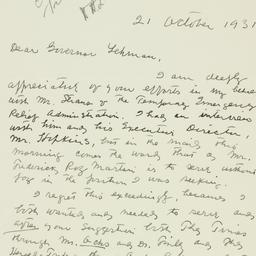 21 October 1931
Dear Governor Lehman,
I am deeply
appreciative of your efforts in my behalf
with Mr. Straus & the Temporary Emergency
Relief Administration. I had an interview
with him and his Executive Director,
Mr. Hopkins, but in the mail this
morning comes the word that a Mr.
Frederick Roy Martin is to serve without
pay in the position I was seeking.
I regret this exceedingly, because I
both wanted and needed to serve and
after your suggestion both The Times
through Mr. Ochs and Dr. Finley and The